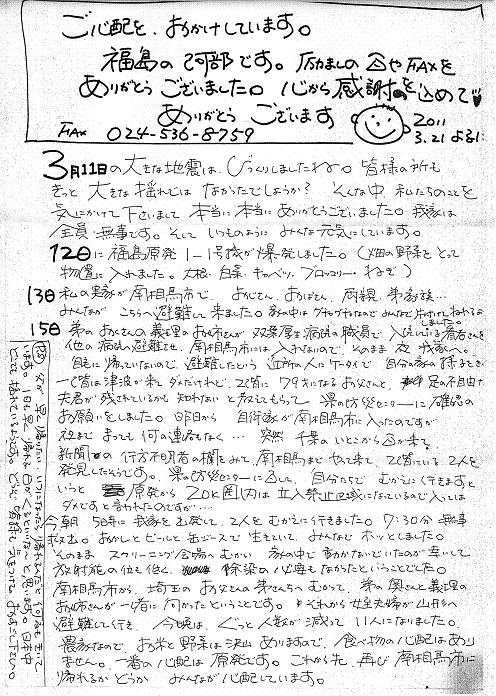 ご心配を、おかけしています。
福島の阿部です。励ましの☎やFAXを
ありがとうございました。心から感謝を込めて♥
ありがとう ございます
FAX 024-536-8759
2011
3.21 よる
3月11日の大きな地震は、びっくりしましたね。皆様の所も
きっと 大きな揺れでは なかったでしょうか? そんな中 私たちのことを
気にかけて下さいまして 本当に本当に ありがとうございました。我家は
全員無事です。そして いつものように みんな元気にしています。
12日に福島原発1-1号機が爆発しました。(畑の野菜をとって
物置に入れました。大根・白菜・キャベツ・ブロッコリー・ねぎ)
13日 私の実家が南相馬市で、おじさん、おばさん、両親、弟家族…
みんなが こちらへ避難して来ました。家の中は
しました。
15日 弟のお嫁さんの義理のお姉さんが双葉厚生病院の職員で 入院している患者さんを
他の病院へ避難させ、南相馬市には入れないので、そのまま 夜 我家へ。
自宅に帰っていないので、避難したという 近所の人にケータイで 自分の家の様子をきく
と1階は津波が来てダメだけれど、2階に 81才になるお父さんと、足の不自由な
夫君が残されているかも知れないと教えてもらって 県の防災センターに確認の
お願いをしました。昨日から 自衛隊が南相馬市に入ったのですが
夜まで まっても何の連絡もなく… 突然 千葉のいとこから☎が来て
新聞の行方不明者の欄をみて、南相馬までやって来て 2階にいる 2人を
発見したそうです。県の防災センターに☎して、自分たちで むかえに行きますと
いうと 原発から 20K圏内は立入禁止区域になっているので入っては
ダメですと言われたのですが…
今朝 5時に我家を出発して、2人をむかえに行きました。7:30分 無事
救出。おかしとビールと缶ジュースで生きていて、みんなで ホッとしました。
そのまま スクリーニング会場へむかい 家の中で動かないでいたのが幸いして
放射能の位も低く、除染の必要もなかったということでした。
南相馬市から、埼玉のお父さんの弟さんちへむかって、弟の奥さんと義理の
お姉さんが一緒に向かったということです。それから 妹夫婦が山形へ
避難して行き、今晩は、ぐっと人数が減って 11人になりました。
農家なので、お米と野菜は沢山ありますので、食べ物の心配はあり
ません。一番の心配は原発です。これから先、再び南相馬市に
帰れるかどうか みんなが心配しています。